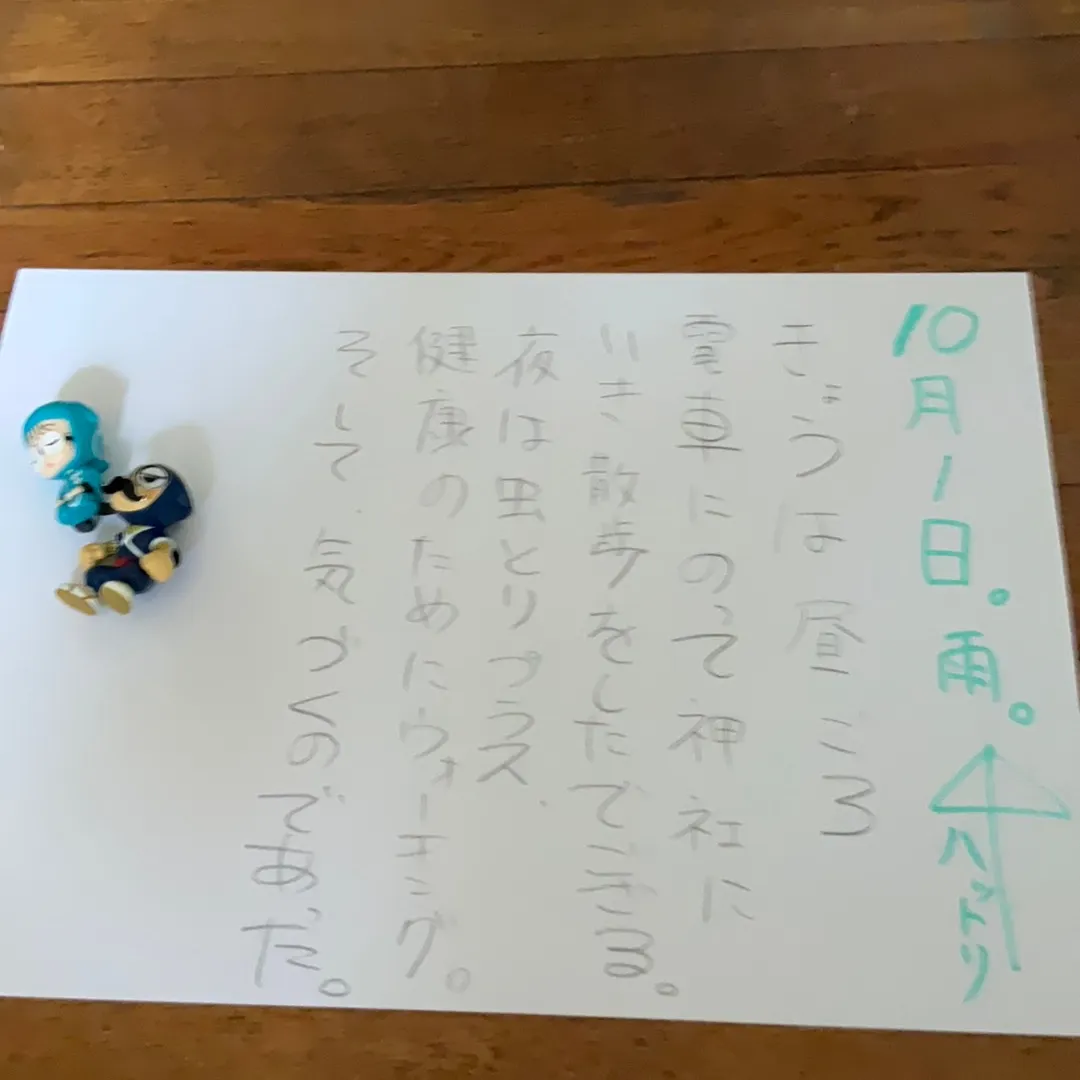 10月1日。雨。ハットリ
きょうは昼ころ
電車にのって神社に
いき散歩をしたでござる。
夜は虫とりプラス、
健康のためにウォーキング。
そして、気づくのであった。